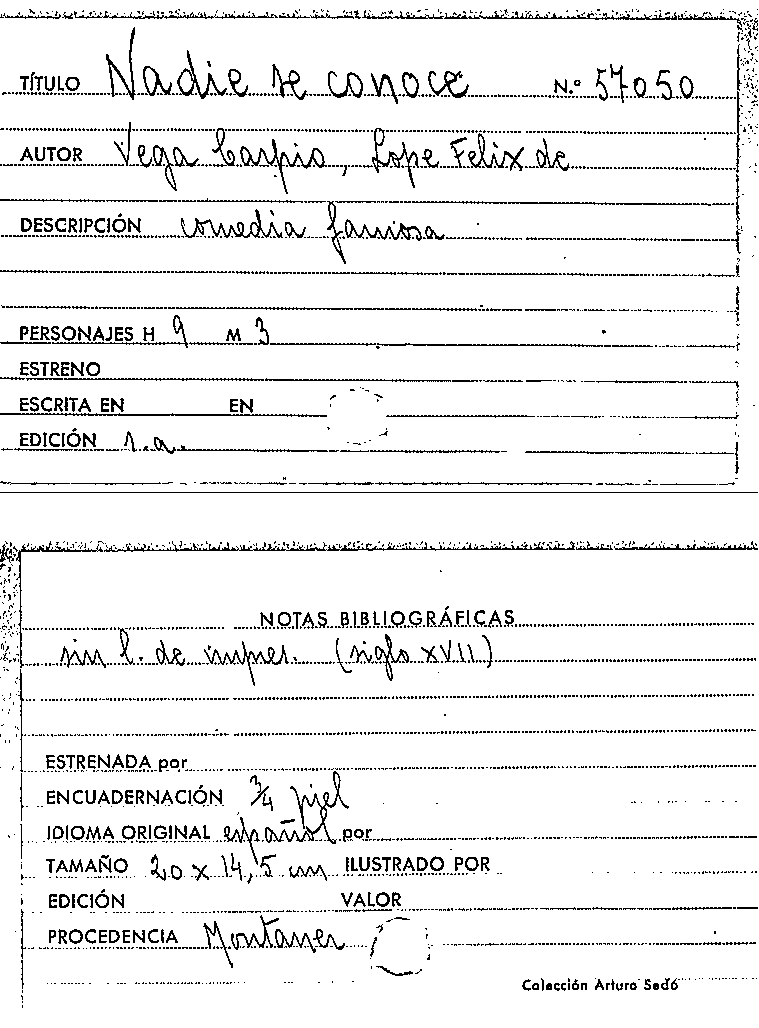 TÍTULO Nadie se conoce N.º 57050
AUTOR Vega Carpio, Lope Felix de
DESCRIPCIÓN comedia famosa
PERSONAJES H 9 M 3
ESTRENO
ESCRITA EN EN
EDICIÓN s.a.
NOTAS BIBLIOGRÁFICAS
sin l. de impres. (siglo XVII)
ESTRENADA por
ENCUADERNACIÓN 3/4 piel
IDIOMA ORIGINAL español por
TAMAÑO 20 x 14,5 cm ILUSTRADO POR
EDICIÓN VALOR
PROCEDENCIA Montaner
Colección Arturo Sedó